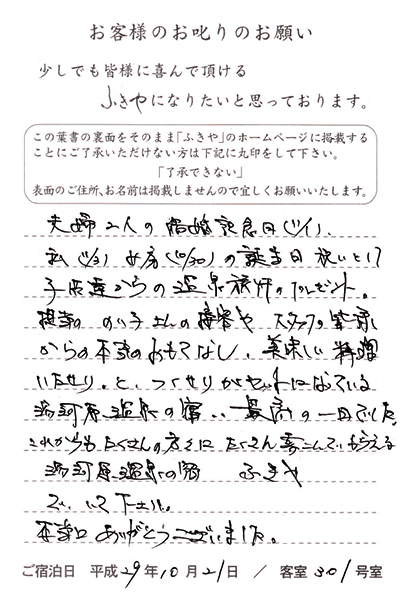 お客様のお叱りのお願い
少しでも皆様に喜んで頂ける
ふきやになりたいと思っております。
この葉書の裏面をそのまま「ふきや」のホームページに掲載する
ことにご了承いただけない方は下記に丸印をして下さい。
「了承できない」
表面のご住所、お名前は掲載しませんので宜しくお願いいたします。
夫婦2人の結婚記念日
私 女房(10/30)の誕生日祝いとして
子供達からの温泉旅行のプレゼント。
の接客や スタッフの皆様
からの本当のおもてなし、美味しい料理
いたせり、と、つくせりがセットになっている
湯河原温泉の宿、、最高の一日でした。
これからもたくさんの方々にたくさん喜こんでもらえる
湯河原温泉の宿 ふきや
でいて下さい。
本当にありがとうございました。
ご宿泊日 平成29年10月21日 / 客室301号室